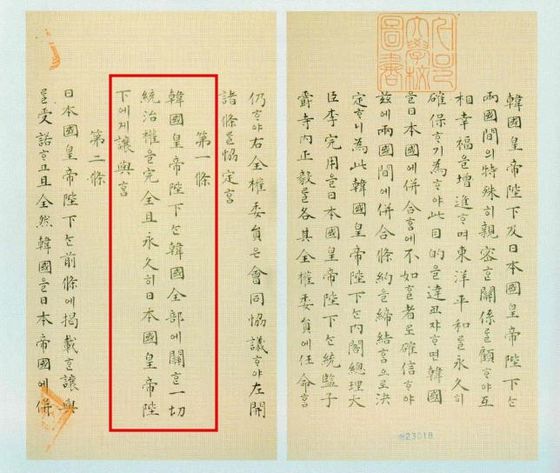 韓國皇帝陛下及日本國皇帝陛下는
兩國間의特殊히親密ᄒᆞᆫ關係를顧ᄒᆞ야互
相幸福을增進ᄒᆞ며東洋平和를永久히
確保ᄒᆞ기爲ᄒᆞ야此目的을達코쟈ᄒᆞ면韓國
을日本國에倂合ᄒᆞᆷ에不如ᄒᆞᆫ者로確信ᄒᆞ야
玆에兩國間에倂合條約을締結ᄒᆞᆷ으로決
定ᄒᆞ니爲此韓國皇帝陛下는內閣總理大
臣李完用을日本國皇帝陛下는統監子
爵寺內正毅를各其全權委員에任命ᄒᆞᆷ
23018
仍ᄒᆞ야右全權委員은會同協議ᄒᆞ야左開
諸條를協定ᄒᆞᆷ
第一條
韓國皇帝陛下는韓國全部에關ᄒᆞᆫ一切
統治權을完全且永久히日本國皇帝陛
下에게讓與ᄒᆞᆷ
第二條
日本國皇帝陛下는前條에揭載ᄒᆞᆫ讓與
를受諾ᄒᆞ고且全然韓國을日本帝國에倂